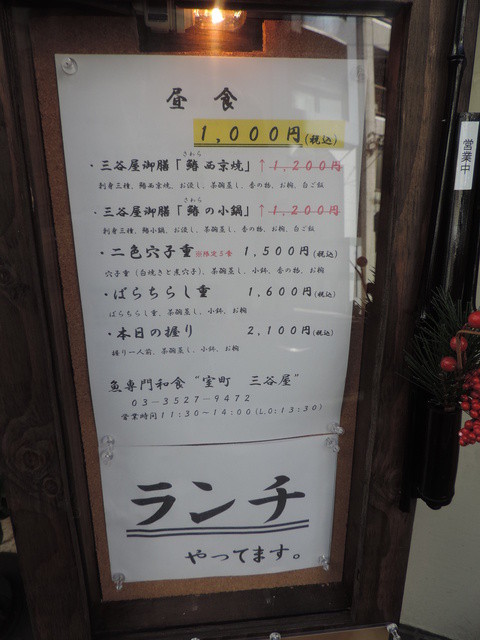 昼食
1,000円(税込)
さわら
・三谷屋御膳「鰆西京焼」↑1,200円
刺身三種、鰆西京焼、お浸し、茶碗蒸し、香の物、お椀、白ご飯
さわら
・三谷屋御膳「鰆の小鍋」↑1,200円
刺身三種、鰆小鍋、お浸し、茶碗蒸し、香の物、お椀、白ご飯
・二色穴子重 ※限定5重 1,500円(税込)
穴子重(白焼きと煮穴子)、茶碗蒸し、小鉢、香の物、お椀
・ばらちらし重 1,600円(税込)
ばらちらし重、茶碗蒸し、小鉢、お椀
・本日の握り 2,100円(税込)
握り一人前、茶碗蒸し、小鉢、お椀
魚専門和食“室町 三谷屋”
03-3527-9472
営業時間11:30～14:00(L.O:13:30)
ランチ
やってます。
営業中